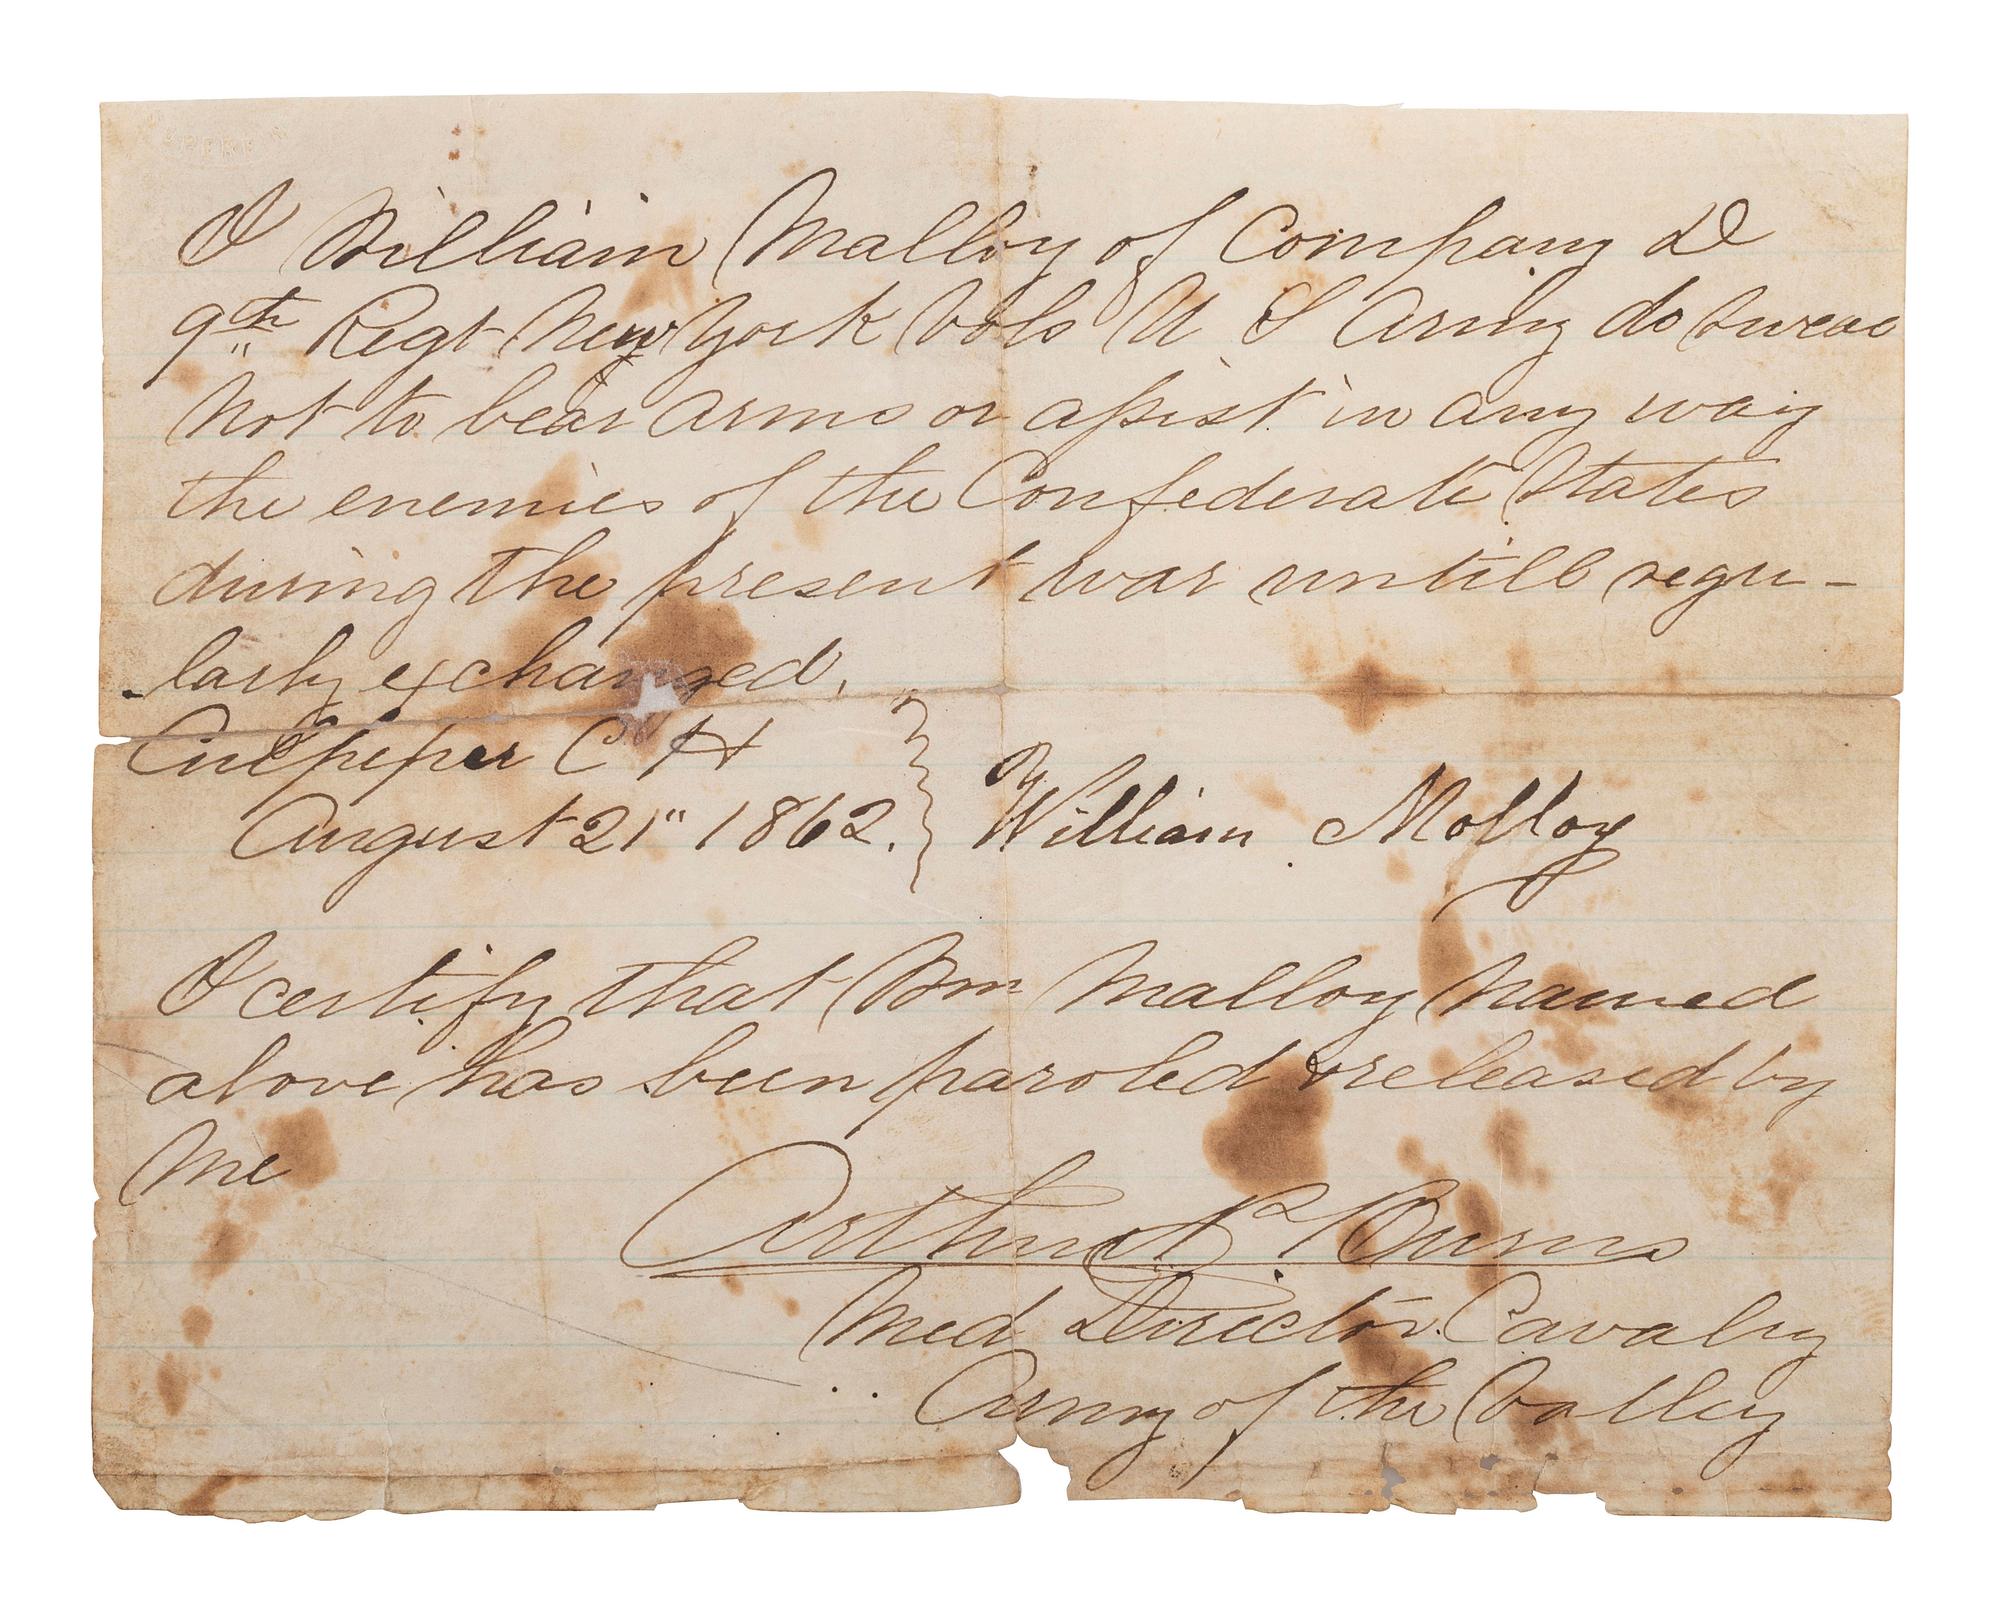 I William Malloy of Company D
9th Regt New York Vols U S Army do swear
not to bear arms or assist in any way
the enemies of the Confederate States
during the present war untill regu-
larly exchanged.
Culpeper C H
August 21" 1862. } William Molloy
I certify that Wm Malloy named
above has been paroled & released by
me
Arthur R Burns
Med Director Cavalry
Army of the Valley